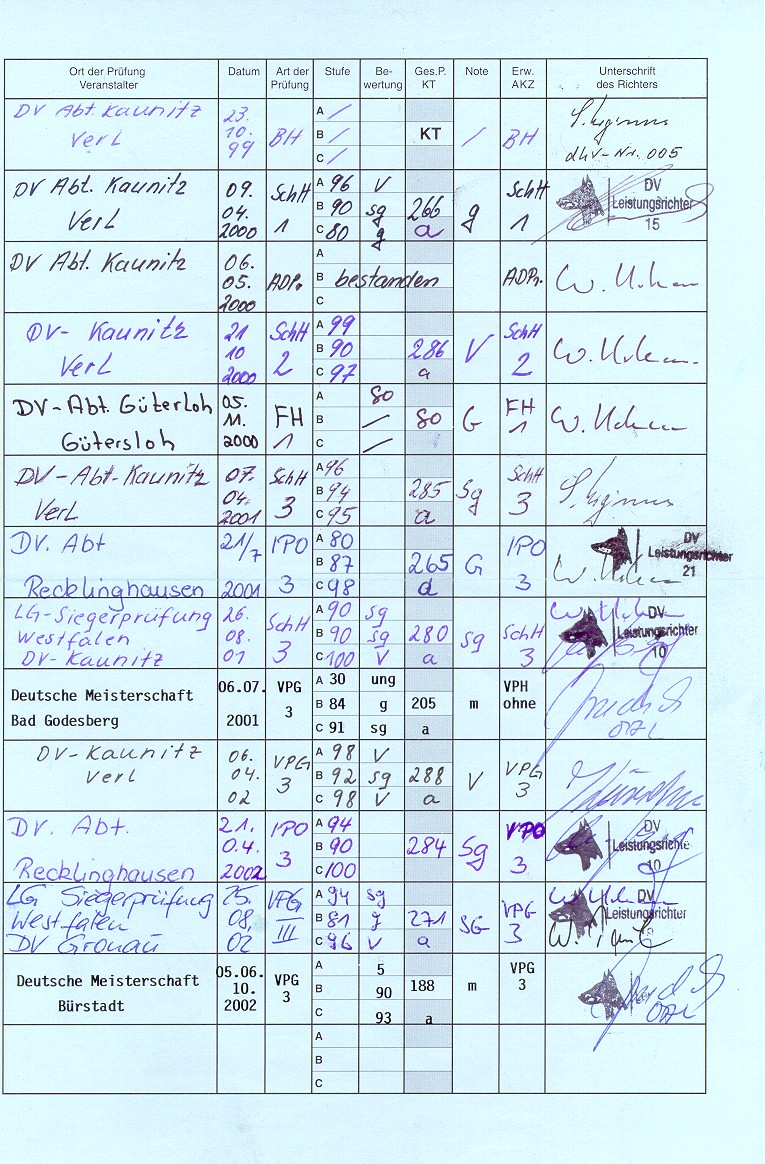 Ort der Prüfung Veranstalter Datum Art der Prüfung Stufe Be-wertung Ges.P. KT Note Erw. AKZ Unterschrift des Richters
DV Abt. Kaunitz 23. A /
Verl 10. BH B / KT / BH
99 C / dhv-Nr. 005
DV Abt. Kaunitz 09. SchH A 96 V SchH DV
Verl 04. 1 B 90 sg 266 g 1 Leistungsrichter
2000 C 80 g a 15
DV Abt. Kaunitz 06. A
05. ADPr. B bestanden ADPr.
2000 C
DV- Kaunitz 21 SchH A 99 SchH
Verl 10 2 B 90 286 V 2
2000 C 97 a
DV-Abt. Güterloh 05. FH A 80 FH
Gütersloh 11. 1 B / 80 G 1
2000 C /
DV-Abt-Kaunitz 07. SchH A 96 SchH
Verl 04. 3 B 94 285 Sg 3
2001 C 95 a
DV. Abt 21/7 IPO A 80 IPO DV
Recklinghausen 2001 3 B 87 265 G 3 Leistungsrichter
C 98 a 21
LG-Siegerprüfung 26. SchH A 90 sg SchH DV
Westfalen 08. 3 B 90 sg 280 sg 3 Leistungsrichter
DV-Kaunitz 01 C 100 V a 10
Deutsche Meisterschaft 06.07. VPG A 30 ung VPH
Bad Godesberg 2001 3 B 84 g 205 m ohne
C 91 sg a
DV-Kaunitz 06. VPG A 98 V VPG
Verl 04. 3 B 92 sg 288 V 3
02 C 98 V a
DV. Abt. 21. IPO A 94 DV
Recklinghausen 0.4. 3 B 90 284 Sg 3 Leistungsrichter
2002 C 100 10
LG Siegerprüfung 25. VPG A 94 sg VPG DV
Westfalen 08. III B 81 g 271 SG 3 Leistungsrichter
DV Gronau 02 C 96 V a
Deutsche Meisterschaft 05.06. VPG A 5 VPG
Bürstadt 10. 3 B 90 188 m 3
2002 C 93 a
A
B
C